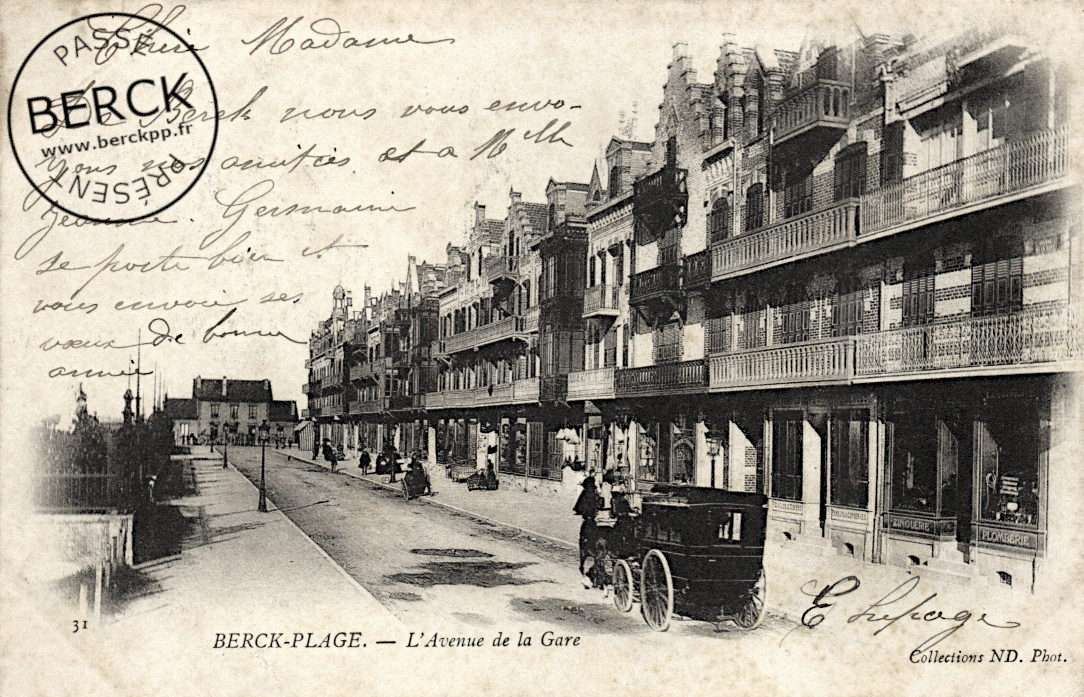 PASSÉ
BERCK
www.berckpp.fr
PRÉSENT
Chère Madame
Berck nous vous envo-
yons nos amitiés et a Mlle
Jeanne. Germaine
se porte bien et
vous envoie ses
vœux de bonne
année
ZINGUERIE
PLOMBERIE
E Lepage
31
BERCK-PLAGE. — L'Avenue de la Gare
Collections ND. Phot.